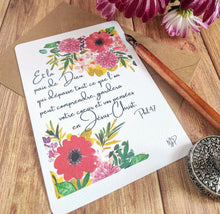 Et la
paix de Dieu,
qui dépasse tout ce que l'on
peut comprendre, gardera
votre cœur et vos pensées
en Jésus-Christ.
Phil 4:7